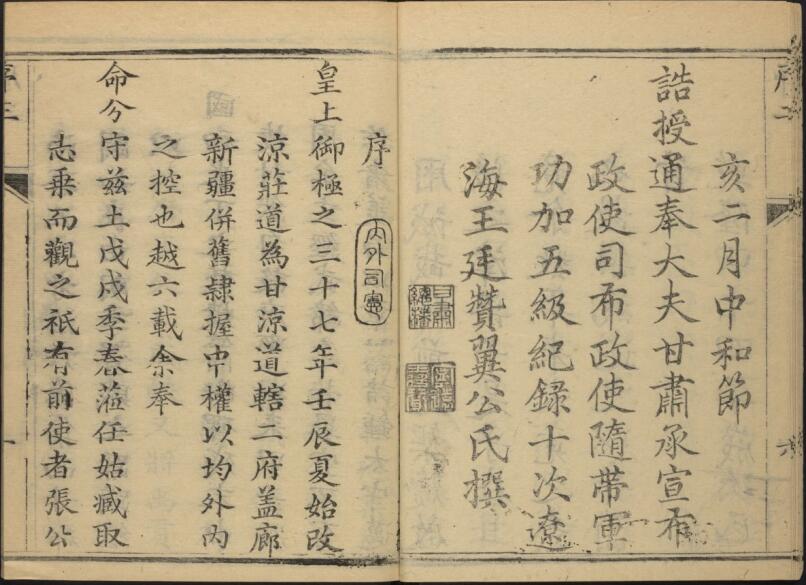 序二
六
亥二月中和節
誥授通奉大夫甘肅承宣布
政使司布政使隨帶軍
功加五級紀録十次遼
海王廷贊翼公氏撰
序
内外司憲
皇上御極之三十七年壬辰夏始改
涼莊道為甘涼道轄二府盖廊
新疆併舊隸握中權以均外內
之控也越六載余奉
命分守兹土戊戌季春蒞任姑臧取
志乗而觀之祇有前使者張公
序三
一